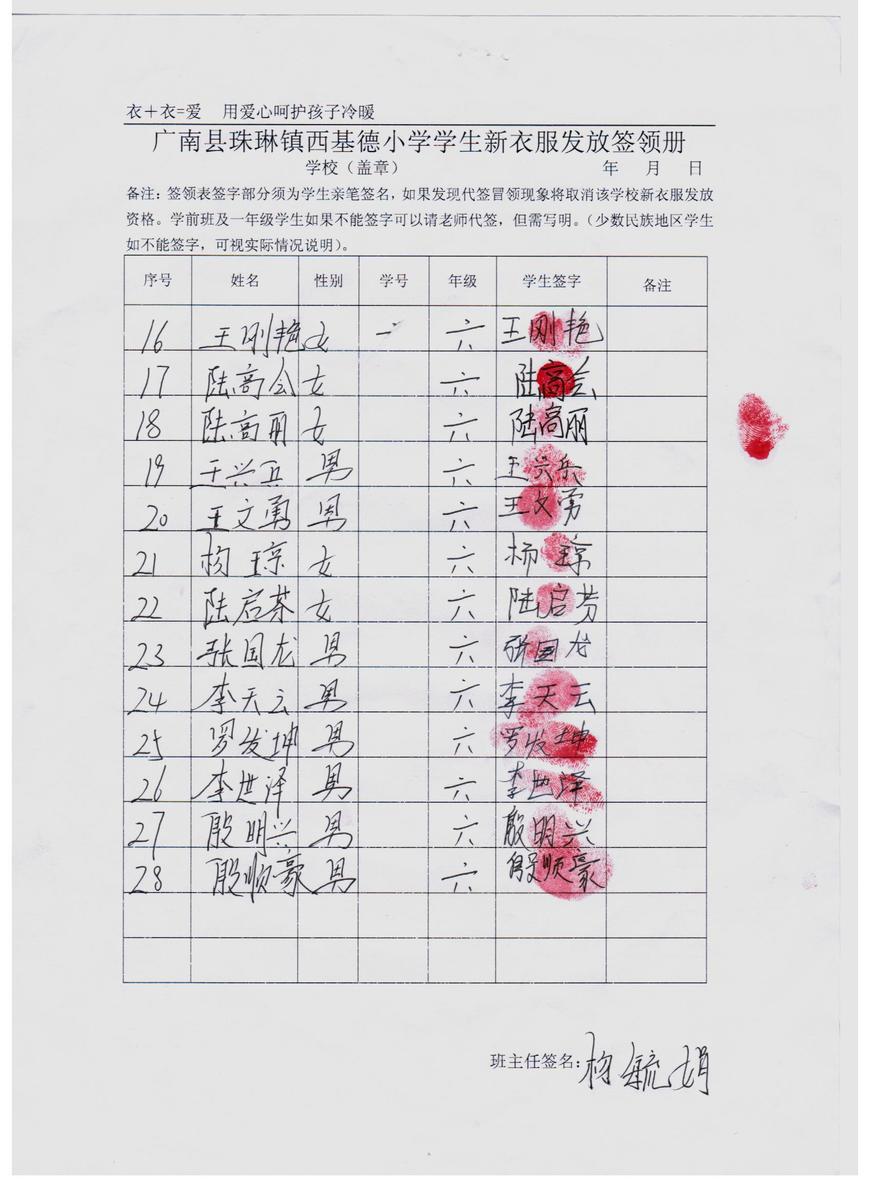 衣＋衣=爱 用爱心呵护孩子冷暖
广南县珠琳镇西基德小学学生新衣服发放签领册
学校（盖章） 年 月 日
备注：签领表签字部分须为学生亲笔签名，如果发现代签冒领现象将取消该学校新衣服发放
资格。学前班及一年级学生如果不能签字可以请老师代签，但需写明。（少数民族地区学生
如不能签字，可视实际情况说明）。
序号 姓名 性别 学号 年级 学生签字 备注
16 王刚艳 女 一 六 王刚艳
17 陆高会 女 六 陆高会
18 陆高丽 女 六 陆高丽
19 王兴兵 男 六 王兴兵
20 王文勇 男 六 王文勇
21 杨琼 女 六 杨琼
22 陆启芬 女 六 陆启芬
23 张国龙 男 六 张国龙
24 李天云 男 六 李天云
25 罗发坤 男 六 罗发坤
26 李世泽 男 六 李世泽
27 殷明兴 男 六 殷明兴
28 殷顺豪 男 六 殷顺豪
班主任签名：杨毓娟